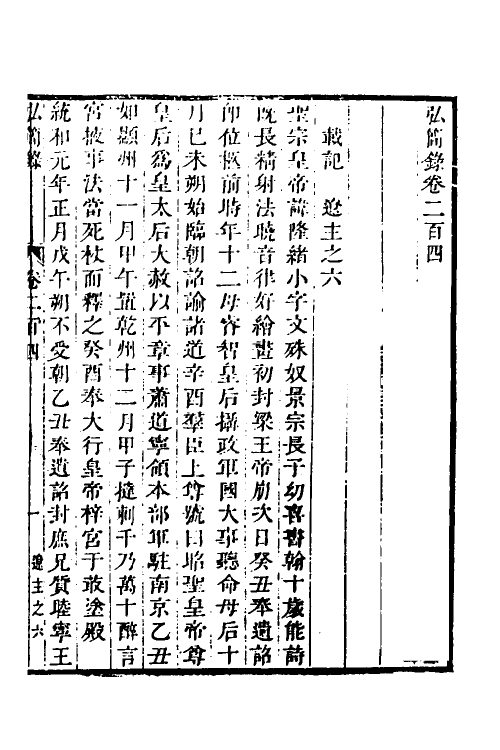 弘簡錄卷二百四
載記　遼主之六
聖宗皇帝諱隆緒小字文殊奴景宗長子幼喜書翰十歲能詩
既長精射法曉音律好繪畫初封梁王帝崩次日癸丑奉遺詔
即位柩前時年十二母睿智皇后攝政軍國大事聽命母后十
月己未朔始臨朝詔諭諸道辛酉羣臣上尊號曰昭聖皇帝尊
皇后爲皇太后大赦以平章事蕭道寧領本部軍駐南京乙丑
如顯州十一月甲午置乾州十二月甲子撻剌千乃萬十醉言
宮掖事法當死杖而釋之癸酉奉大行皇帝梓宮于菆塗殿
統和元年正月戊午朔不受朝乙丑奉遺詔封庶兄質睦寧王
弘簡錄　卷二百四　一　遼主之六